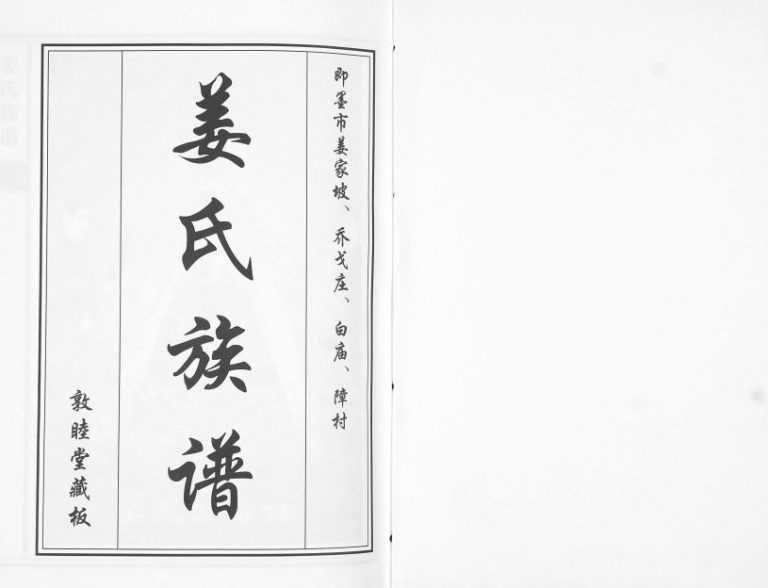 即墨市姜家坡、乔戈庄、白庙、障村
姜氏族谱
敦睦堂藏板